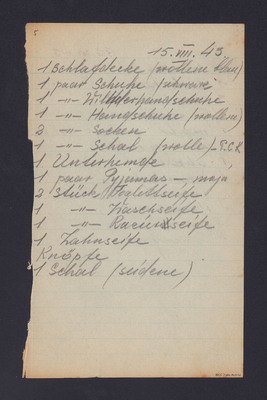 5
15. VIII. 43.
1 Schlafdecke
1 paar Schuhe (schwarz)
1 -"- Wildlederhandschuhe
1 -"- Handschuhe (wollene)
2 -"- Socken
1 -"- Schal (wolle)
1 Unterhemde
1 paar Pyjamas —
2 Stück Toilettseife
1 -"- Waschseife
1 -"- Rasierseife
1 Zahnseife
Knöpfe
1 Schal (seidene)